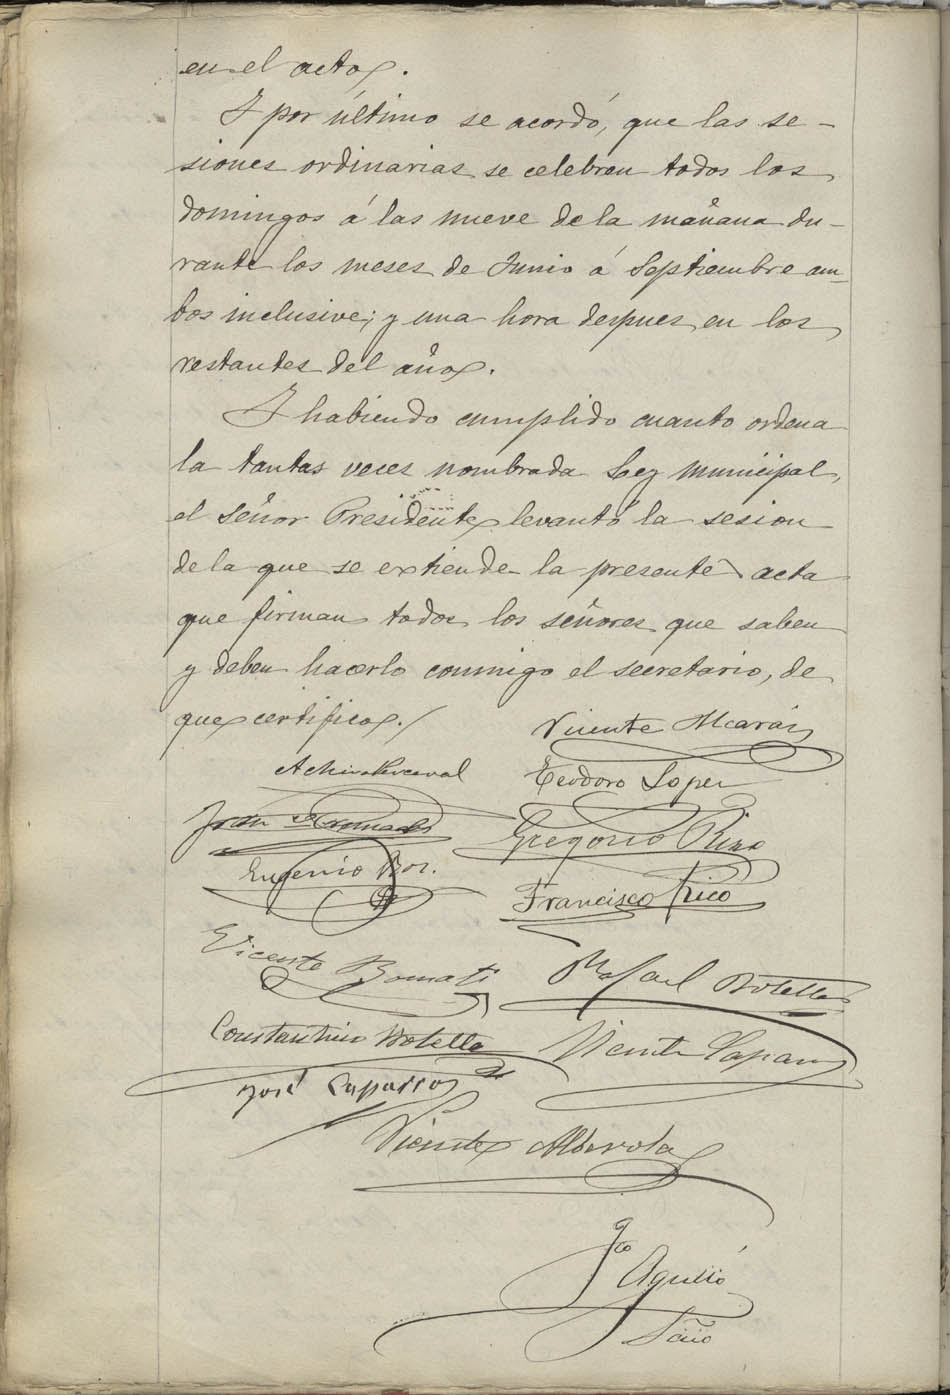 en el acto.
Y por último se acordó, que las se-
siones ordinarias se celebren todos los
domingos á las nueve de la mañana du-
rante los meses de Junio á Septiembre am-
bos inclusive; y una hora despues en los
restantes del año.
Y habiendo cumplido cuanto ordena
la tantas veces nombrada Ley Municipal,
el Señor Presidente levantó la sesion
de la que se extiende la presente acta
que firman todos los señores que saben
y deben hacerlo conmigo el secretario, de
que certifico./
Vicente Alcaráz
Teodoro Lopez
Juan
Gregorio Rizo
Eugenio Bor.
Francisco Rico
Vicente Bomati
Rafael Botella
Constantino Botella
Vicente
José Caparros
Vicente Alberola
Fco Agulló
Srio